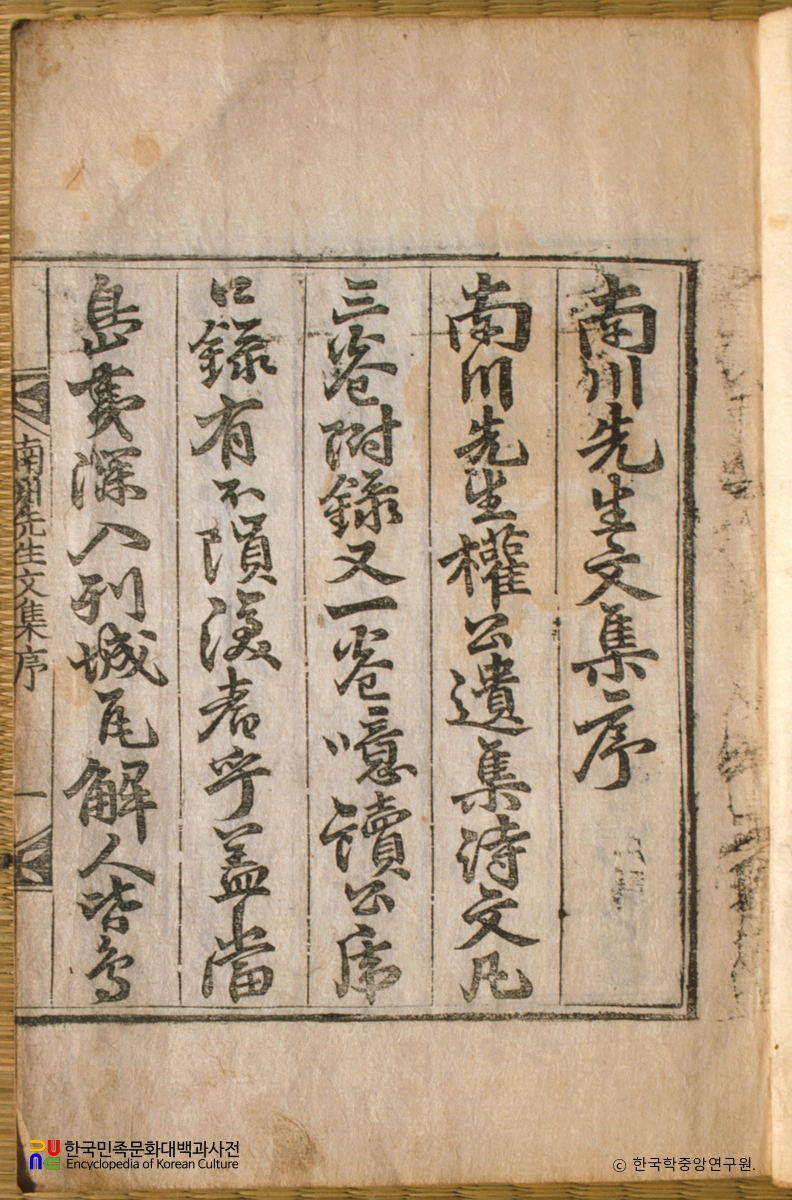 南川先生文集序
南川先生權公遺集詩文凡
三卷附錄又一卷噫讀公席
口錄有不隕淚者乎盖當
島夷深入列城瓦解人皆鳥
南川先生文集序
一
한국민족문화대백과사전
Encyclopedia of Korean Culture
ⓒ 한국학중앙연구원.